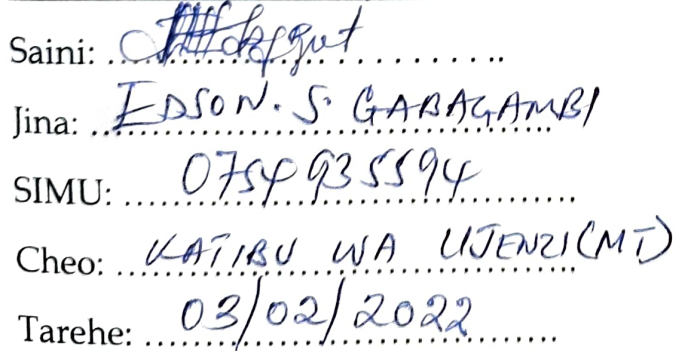 Saini: ....................
Jina: EDSON. S. GABAGAMBI
SIMU: 0754 935594
Cheo: KATIBU WA UJENZI (MT)
Tarehe: 03/02/2022